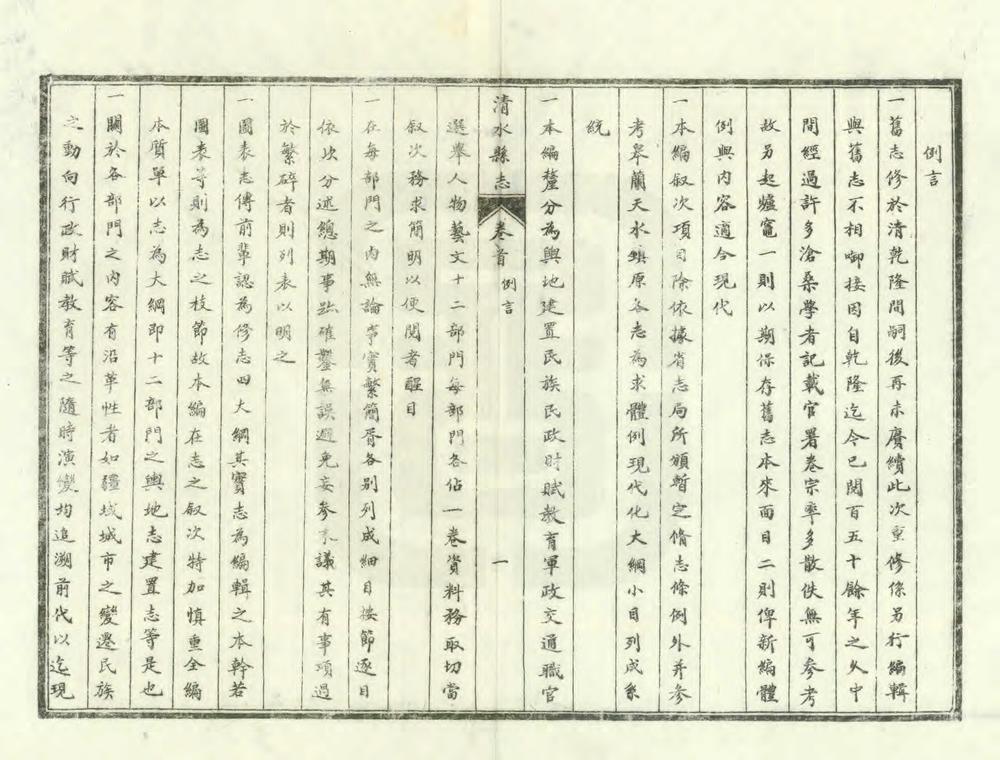 例言
一舊志修於清乾隆間嗣後再未賡續此次重修係另行編輯
與舊志不相啣接因自乾隆迄今已閱百五十餘年之久中
間經過許多滄桑學者記載官署卷宗率多散佚無可參考
故另起爐竈一則以期保存舊志本來面目二則俾新編體
例與內容適合現代
一本編敘次項目除依據省志局所頒暫定修志條例外并參
考皋蘭天水鎮原各志為求體例現代化大綱小目列成系
統
一本編釐分為輿地建置民族民政財賦教育軍政交通職官
清水縣志 卷首 例言 一
選舉人物藝文十二部門每部門各佔一卷資料務取切當
敘次務求簡明以便閱者醒目
一在每部門之內無論事實繁簡胥各別列成細目按節逐目
依次分述總期事跡確鑿無誤避免妄參末議其有事項過
於繁碎者則列表以明之
一圖表志傳前輩認為修志四大綱其實志為編輯之本幹若
圖表等則為志之枝節故本編在志之敘次特加慎重全編
本質單以志為大綱即十二部門之輿地志建置志等是也
一關於各部門之內容有沿革性者如疆域城市之變遷民族
之動向行政財賦教育等之隨時演變均追溯前代以迄現